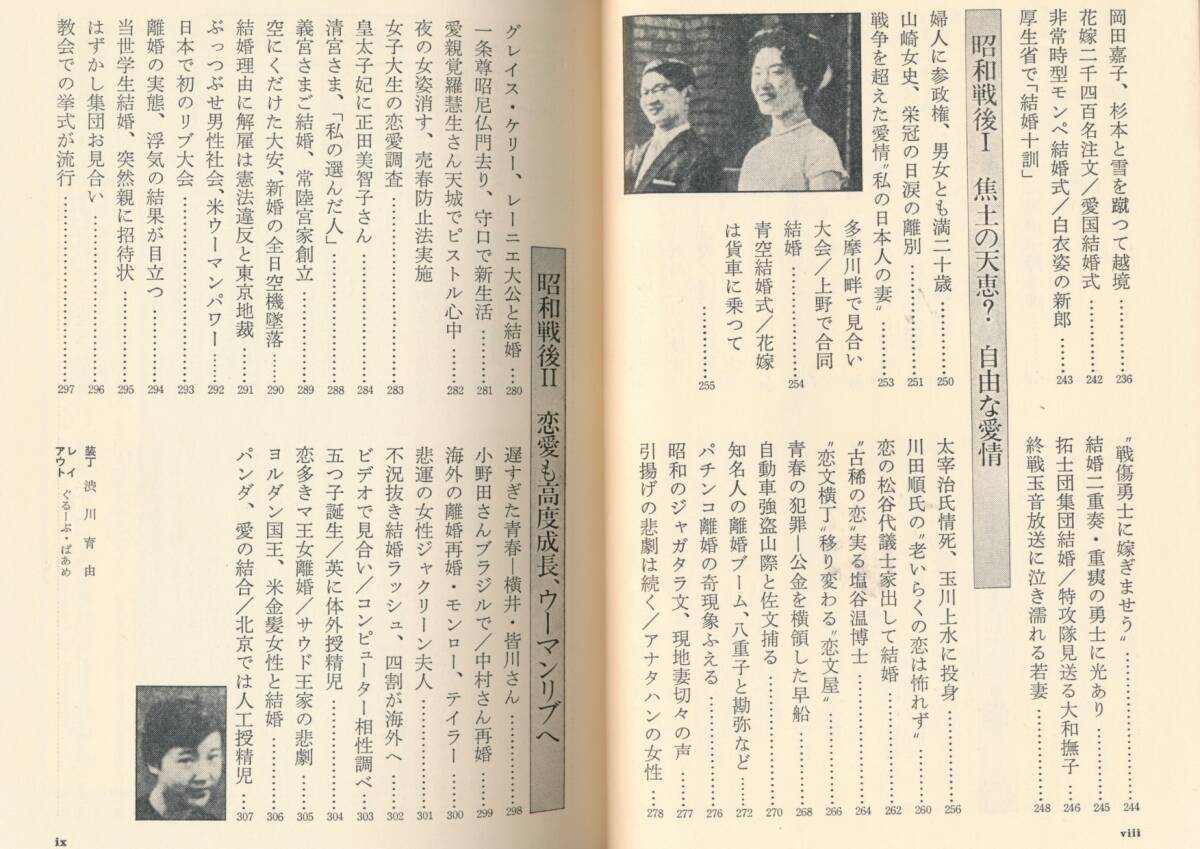 岡田嘉子、杉本と雪を蹴つて越境…………236
花嫁二千四百名注文/愛国結婚式………242
非常時型モンペ結婚式/白衣姿の新郎……243
厚生省で「結婚十訓」
"戦傷勇士に嫁ぎませう"…………244
結婚二重奏・重痍の勇士に光あり………245
拓士団集団結婚/特攻隊見送る大和撫子…246
終戦玉音放送に泣き濡れる若妻…………248
昭和戦後Ⅰ 焦土の天恵? 自由な愛情
婦人に参政権、男女とも満二十歳………250
山崎女史、栄冠の日涙の離別…………251
戦争を超えた愛情"私の日本人の妻"………253
多摩川畔で見合い
大会/上野で合同
結婚…………254
青空結婚式/花嫁
は貨車に乗つて
…………255
太宰治氏情死、玉川上水に投身…………256
川田順氏の"老いらくの恋は怖れず"………260
恋の松谷代議士家出して結婚…………262
"古稀の恋"実る塩谷温博士…………264
"恋文横丁"移り変わる"恋文屋"…………266
青春の犯罪―公金を横領した早船………268
自動車強盗山際と佐文捕る…………270
知名人の離婚ブーム、八重子と勘弥など……272
パチンコ離婚の奇現象ふえる…………276
昭和のジャガタラ文、現地妻切々の声……277
引揚げの悲劇は続く/アナタハンの女性…278
viii
昭和戦後Ⅱ 恋愛も高度成長、ウーマンリブへ
グレイス・ケリー、レーニエ大公と結婚…280
一条尊昭尼仏門去り、守口で新生活………281
愛親覚羅慧生さん天城でピストル心中……282
夜の女姿消す、売春防止法実施
女子大生の恋愛調査…………283
皇太子妃に正田美智子さん…………284
清宮さま、「私の選んだ人」…………288
義宮さまご結婚、常陸宮家創立…………289
空にくだけた大安、新婚の全日空機墜落……290
結婚理由に解雇は憲法違反と東京地裁……291
ぶっつぶせ男性社会、米ウーマンパワー……292
日本で初のリブ大会…………293
離婚の実態、浮気の結果が目立つ………294
当世学生結婚、突然親に招待状…………295
はずかし集団お見合い…………296
教会での挙式が流行…………297
遅すぎた青春―横井・皆川さん…………298
小野田さんブラジルで/中村さん再婚……299
海外の離婚再婚・モンロー、テイラー……300
悲運の女性ジャクリーン夫人…………301
不況抜き結婚ラッシュ、四割が海外へ……302
ビデオで見合い/コンピューター相性調べ…303
五つ子誕生/英に体外授精児…………304
恋多きマ王女離婚/サウド王家の悲劇……305
ヨルダン国王、米金髪女性と結婚………306
パンダ、愛の結合/北京では人工授精児……307
装丁 渋川育由
レイアウト ぐるーぷ・ぱあめ
ix